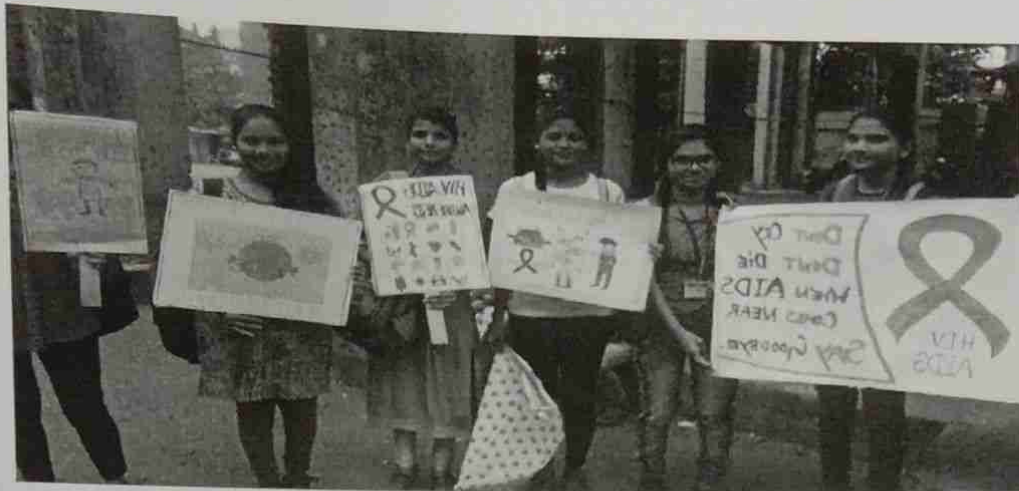 HIV AIDS
AWARENESS
DON'T CRY
DON'T DIE
WHEN AIDS
COMES NEAR
SAY GOODBYE.
HIV
AIDS